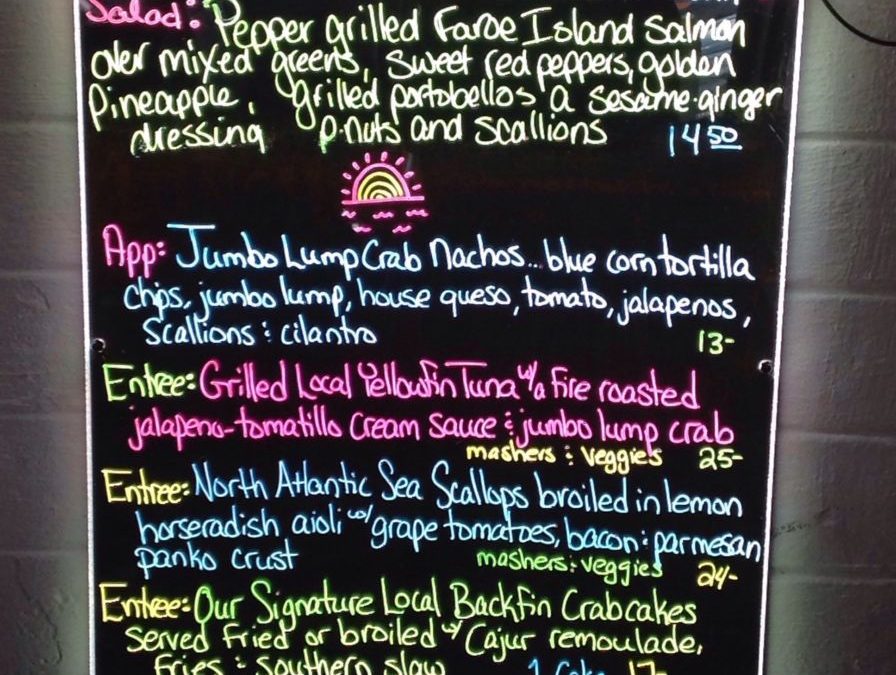 Salad: Pepper grilled Faroe Island Salmon
over mixed greens, sweet red peppers, golden
pineapple, grilled portobellos a sesame-ginger
dressing p-nuts and scallions 14 50
App: Jumbo Lump Crab Nachos... blue corn tortilla
chips, jumbo lump, house queso, tomato, jalapenos,
scallions & cilantro 13-
Entree: Grilled Local Yellowfin Tuna w/ a fire roasted
jalapeno-tomatillo cream sauce & jumbo lump crab
mashers & veggies 25-
Entree: North Atlantic Sea Scallops broiled in lemon
horseradish aioli w/ grape tomatoes, bacon & parmesan
panko crust mashers & veggies 24-
Entree: Our Signature Local Backfin Crabcakes
served fried or broiled w/ Cajun remoulade,
fries & southern slaw 1 Cake 17-